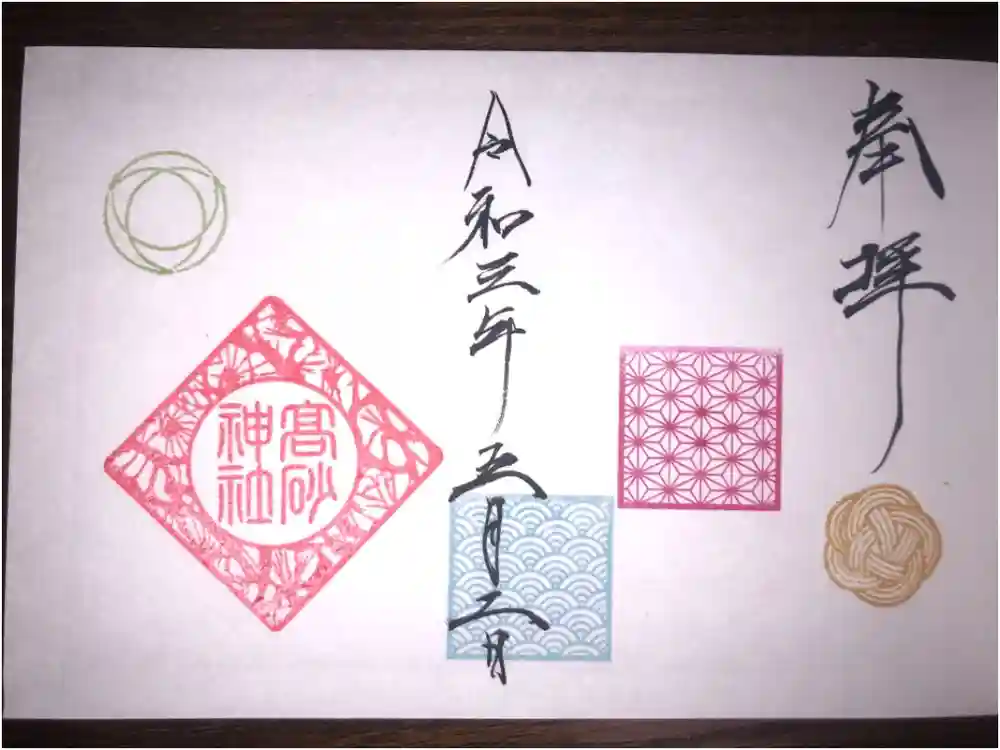 奉拝
令和三年五月二日
髙砂
神社